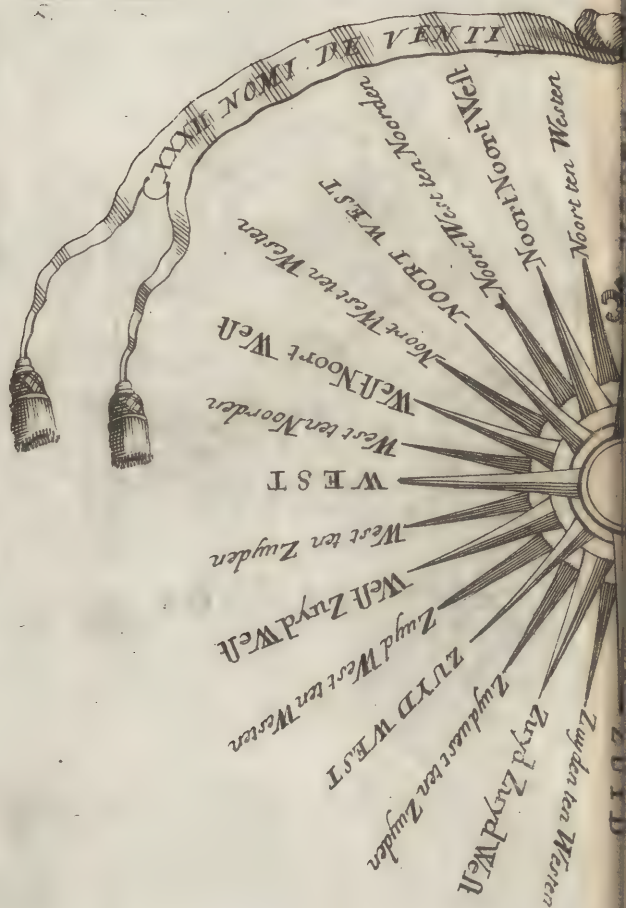 XXXII NOMI DE VENTI
Noort ten Westen
Noort Noort West
Noort West ten Noorden
NOORT WEST
Noort West ten Westen
West Noort West
West ten Noorden
WEST
West ten Zuyden
West Zuyd West
Zuyd West ten Westen
ZUYD WEST
Zuyduest ten Zuyden
Zuyd Zuyd West
Zuyden ten Westen
ZUID